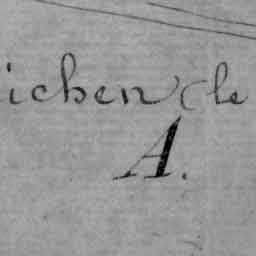 ichen le
A.